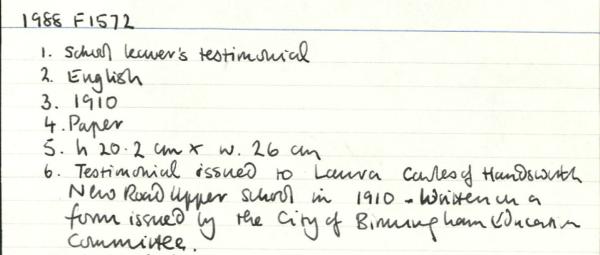 1988 F1572
1. School leaver's testimonial
2. English
3. 1910
4. Paper
5. h 20.2 cm x w. 26 cm
6. Testimonial issued to Laura Carles of Handsworth
New Road Upper School in 1910 - Written on a
form issued by the City of Birmingham Education
Committee.